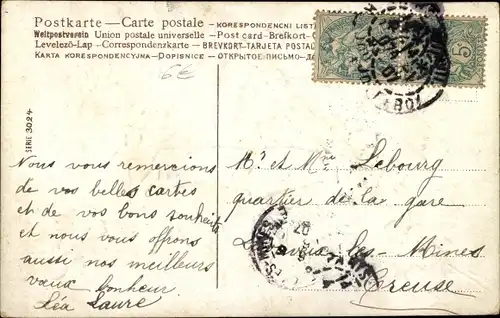 Postkarte — Carte postale — KORESPONDENCNI LIST
Weltpostverein Union postale universelle — Post card — Brefkort
Levelező-Lap — Correspondenzkarte — BREVKORT-TARJETA POSTAL
KARTA KORESPONDENCYJNA — DOPISNICE — ОТКРЫТОЕ ПИСЬМО
6€
SERIE 3024
Nous vous remercions
de vos belles cartes
et de vos bons souhaits
et nous vous offrons
aussi nos meilleurs
vœux bonheur
Léa Laure
Mr et Mme Lebourg
quartier de la gare
Lavaveix-les-Mines
Creuse